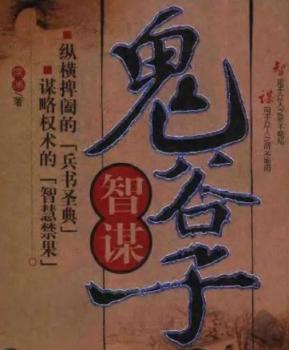 鬼谷子
智谋
纵横捭阖的「兵书圣典」
谋略权术的「智慧禁果」。
著
智
谋